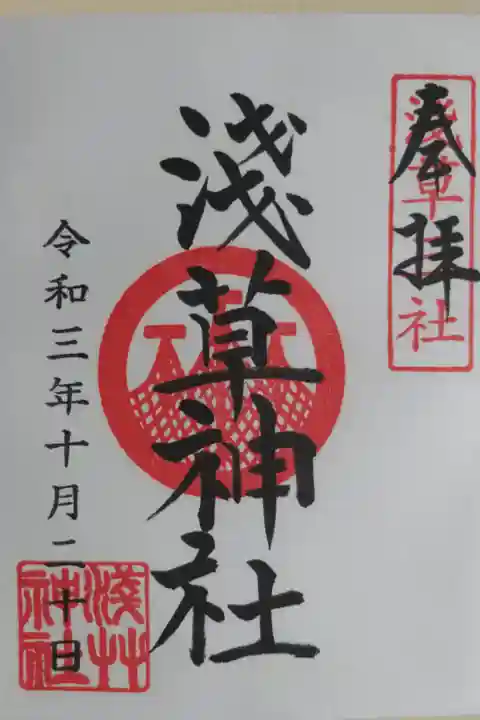 奉拝
浅草神社
淺草神社
令和三年十月二十日
淺草神社